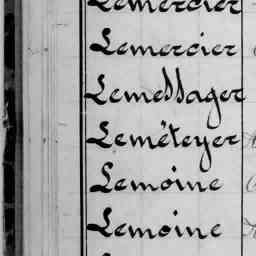 Lemercier
Lemercier
Lemessager
Lemêteyer
Lemoine
Lemoine